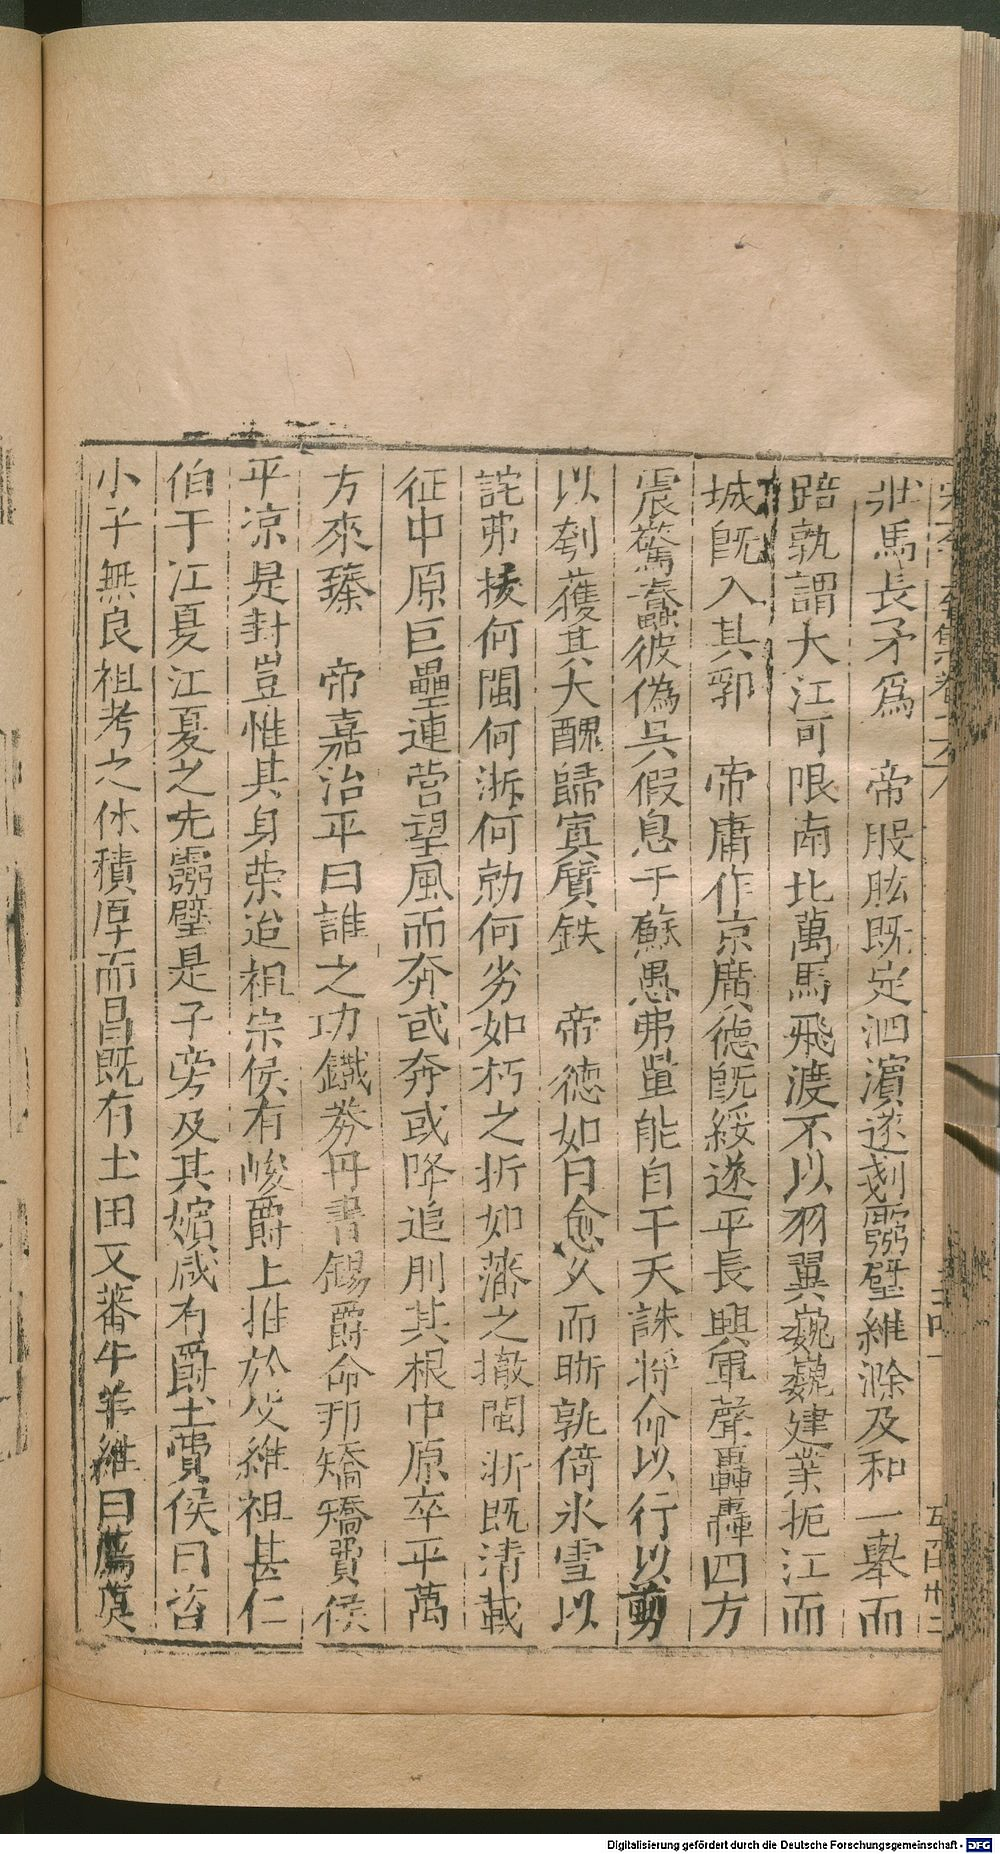 壯馬長矛爲　帝股肱既定泗濵遂剗靈璧維滁及和一舉而
踣孰謂大江可限南北萬馬飛渡不以羽翼巍巍建業扼江而
城旣入其郛　帝庸作京廣德旣綏遂平長興軍聲轟轟四方
震驚蠢彼偽吳假息于蘇愚弗量能自干天誅將命以行以剪
以刳獲其大醜歸寘質鈇　帝德如日愈久而晣孰倚氷雪以
詫弗拔何閩何浙何勍何劣如朽之折如籜之撤閩浙既清載
征中原巨壘連營望風而奔或奔或降追刖其根中原卒平萬
方來臻　帝嘉治平曰誰之功鐵券丹書錫爵命邦矯矯費侯
平凉是封豈惟其身榮迨祖宗侯有峻爵上推於父維祖甚仁
伯于江夏江夏之先靈璧是子旁及其嬪咸有爵土費侯曰咨
小子無良祖考之休積厚而昌既有土田又蕃牛羊維曰薦奠